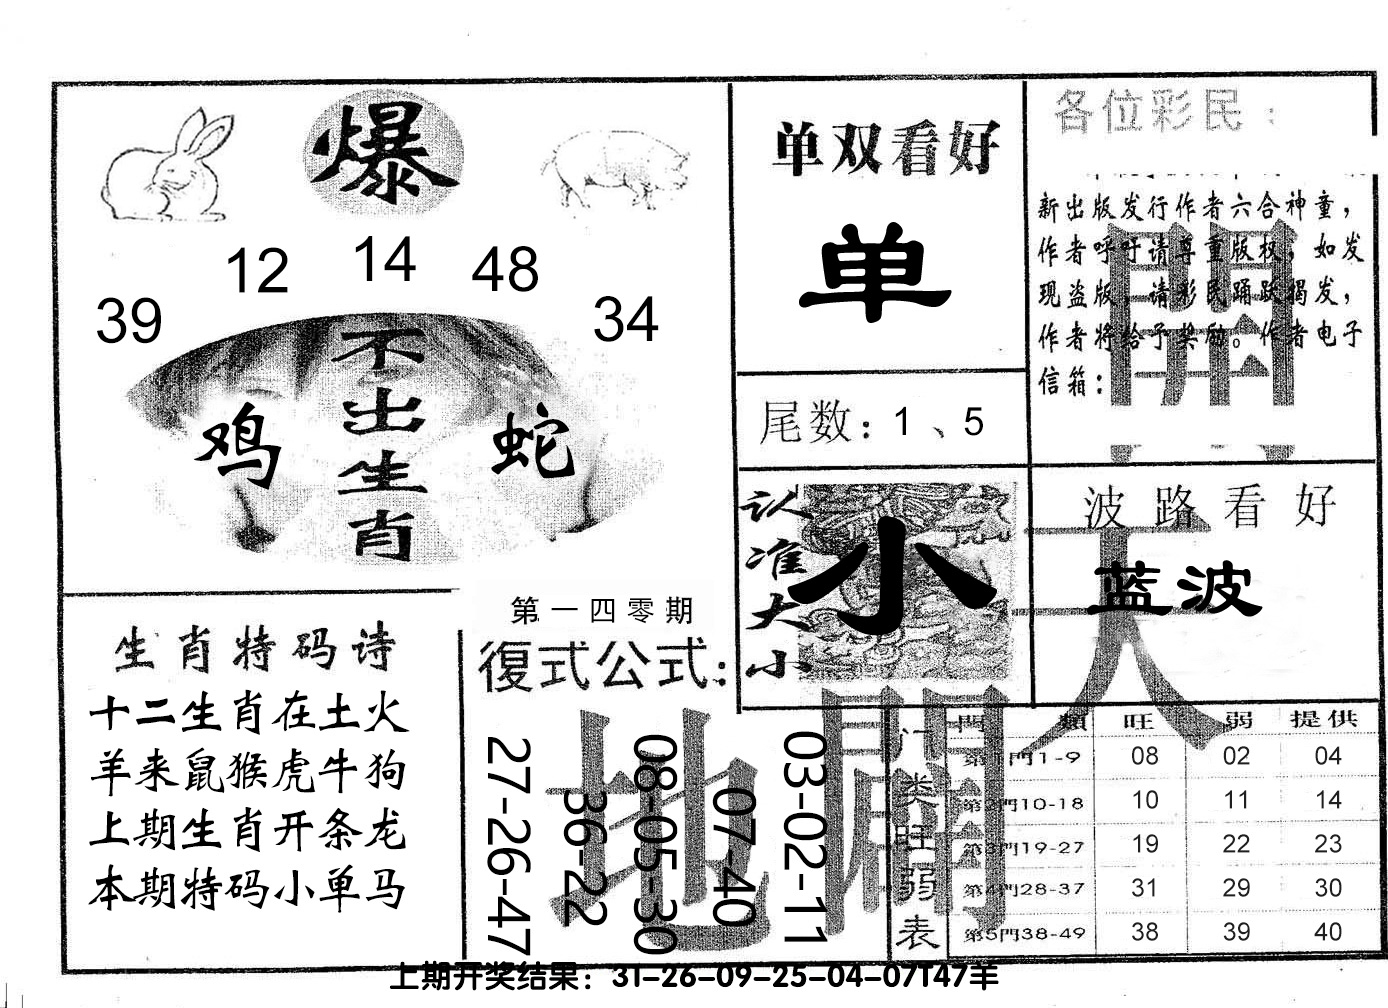 爆
12 14 48
39 34
不出生肖
鸡 蛇
单双看好
单
尾数：1、5
各位彩民：
新出版发行作者六合神童，
作者呼吁请尊重版权，如发
现盗版，请彩民踊跃揭发，
作者将给予奖励。作者电子
信箱：
認准大小
小
波路看好
蓝波
天
地
開
闢
生肖特码诗
十二生肖在土火
羊来鼠猴虎牛狗
上期生肖开条龙
本期特码小单马
第一四零期
復式公式：
27-26-47
36-22
08-05-30
07-40
03-02-11
门类旺弱表
門類 旺 弱 提供
第1門1-9 08 02 04
第2門10-18 10 11 14
第3門19-27 19 22 23
第4門28-37 31 29 30
第5門38-49 38 39 40
上期开奖结果：31-26-09-25-04-07T47羊